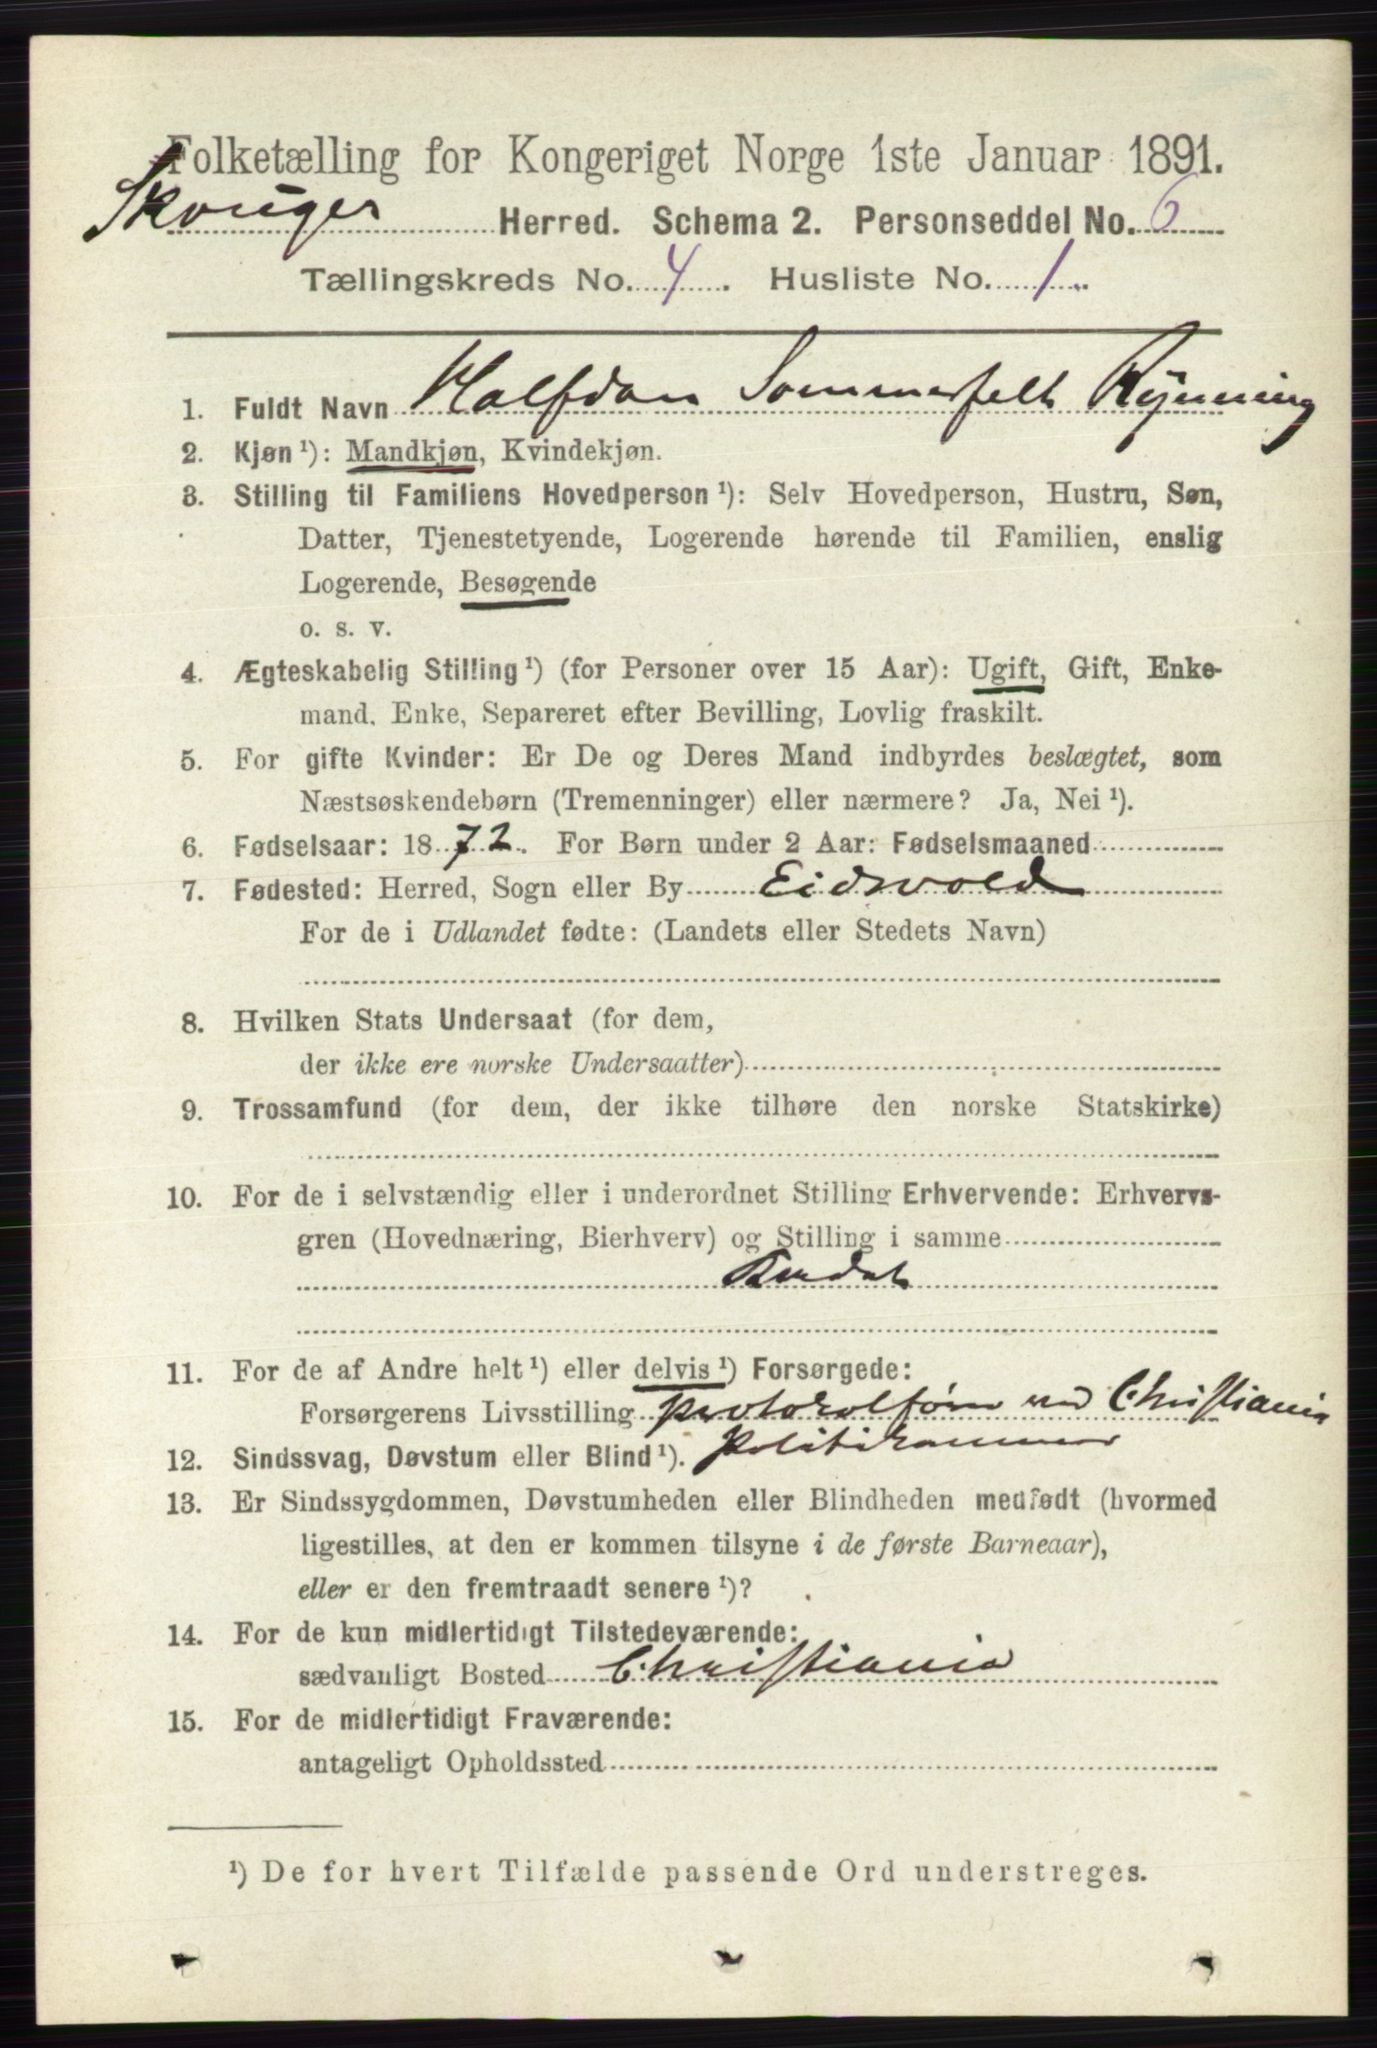 Folketælling for Kongeriget Norge 1ste Januar 1891.
Skouger Herred. Schema 2. Personseddel No. 6
Tællingskreds No. 4. Husliste No. 1.
1. Fuldt Navn Halfdan Sommerfelt Rynning
2. Kjøn ¹): Mandkjøn, Kvindekjøn.
3. Stilling til Familiens Hovedperson ¹): Selv Hovedperson, Hustru, Søn,
Datter, Tjenestetyende, Logerende hørende til Familien, enslig
Logerende, Besøgende
o. s. v.
4. Ægteskabelig Stilling ¹) (for Personer over 15 Aar): Ugift, Gift, Enke-
mand, Enke, Separeret efter Bevilling, Lovlig fraskilt.
5. For gifte Kvinder: Er De og Deres Mand indbyrdes beslægtet, som
Næstsøskendebørn (Tremenninger) eller nærmere? Ja, Nei ¹).
6. Fødselsaar: 1872. For Børn under 2 Aar: Fødselsmaaned
7. Fødested: Herred, Sogn eller By Eidsvold
For de i Udlandet fødte: (Landets eller Stedets Navn)
8. Hvilken Stats Undersaat (for dem,
der ikke ere norske Undersaatter)
9. Trossamfund (for dem, der ikke tilhøre den norske Statskirke)
10. For de i selvstændig eller i underordnet Stilling Erhvervende: Erhvervs-
gren (Hovednæring, Bierhverv) og Stilling i samme
11. For de af Andre helt ¹) eller delvis ¹) Forsørgede:
Forsørgerens Livsstilling protokolfører ved Christiania
12. Sindssvag, Døvstum eller Blind ¹). Politikammer
13. Er Sindssygdommen, Døvstumheden eller Blindheden medfødt (hvormed
ligestilles, at den er kommen tilsyne i de første Barneaar),
eller er den fremtraadt senere ¹)?
14. For de kun midlertidigt Tilstedeværende:
sædvanligt Bosted Christiania
15. For de midlertidigt Fraværende:
antageligt Opholdssted
¹) De for hvert Tilfælde passende Ord understreges.